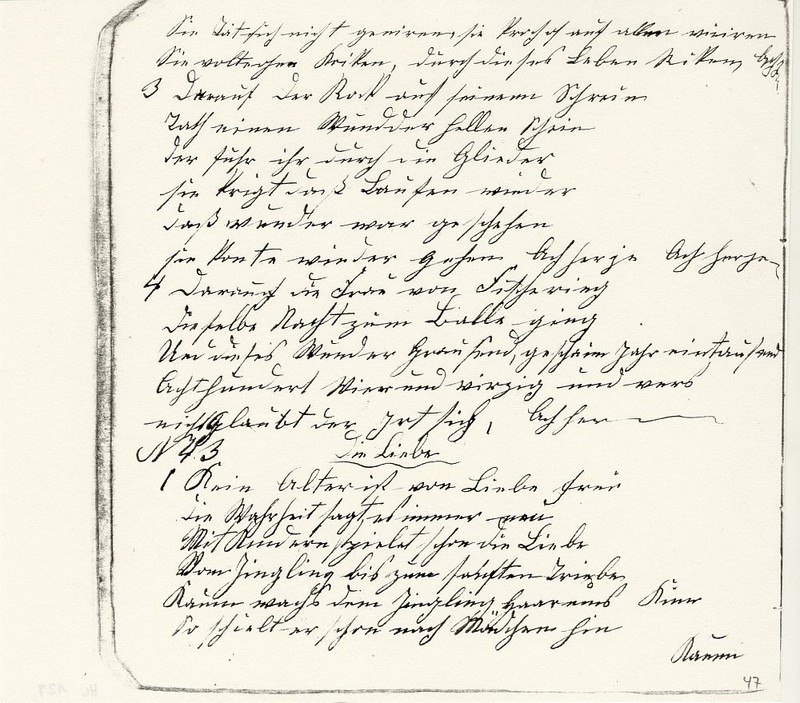 Sie Tät sich nicht geniren, sie Kroch auf allen vieren
Sie volte gehen Kriken, durch dieses Leben Riken, Ach
3 Darauf Der Rock auf seinem Schrein
Tath einen Wundder hellen Schein
der fuhr ihr durch die Glieder
sie Krigt daß Laufen wieder
daß wunder war geschehen
sie Konte wieder gehen Ach herje Ach herje
4 Darauf die Frau von Fischering
dieselbe Nacht zum Balle ging
Und dieses Wunder Grausend, geschaim Jahr eintausend
Achthundert Vier und virzig und vers
nicht glaubt der irt sich, Ach her
N 43 Die Liebe
1 Kein Alter ist von Liebe frei
die Wahrheit sagt es immer neu
Mit Kindern spielet schon die Liebe
Vom Jingling bis zum Triebe
Kaum wachs dem Jingling Haar ums Kinn
So schielt er schon nach Mädchen hin
Kaum
47